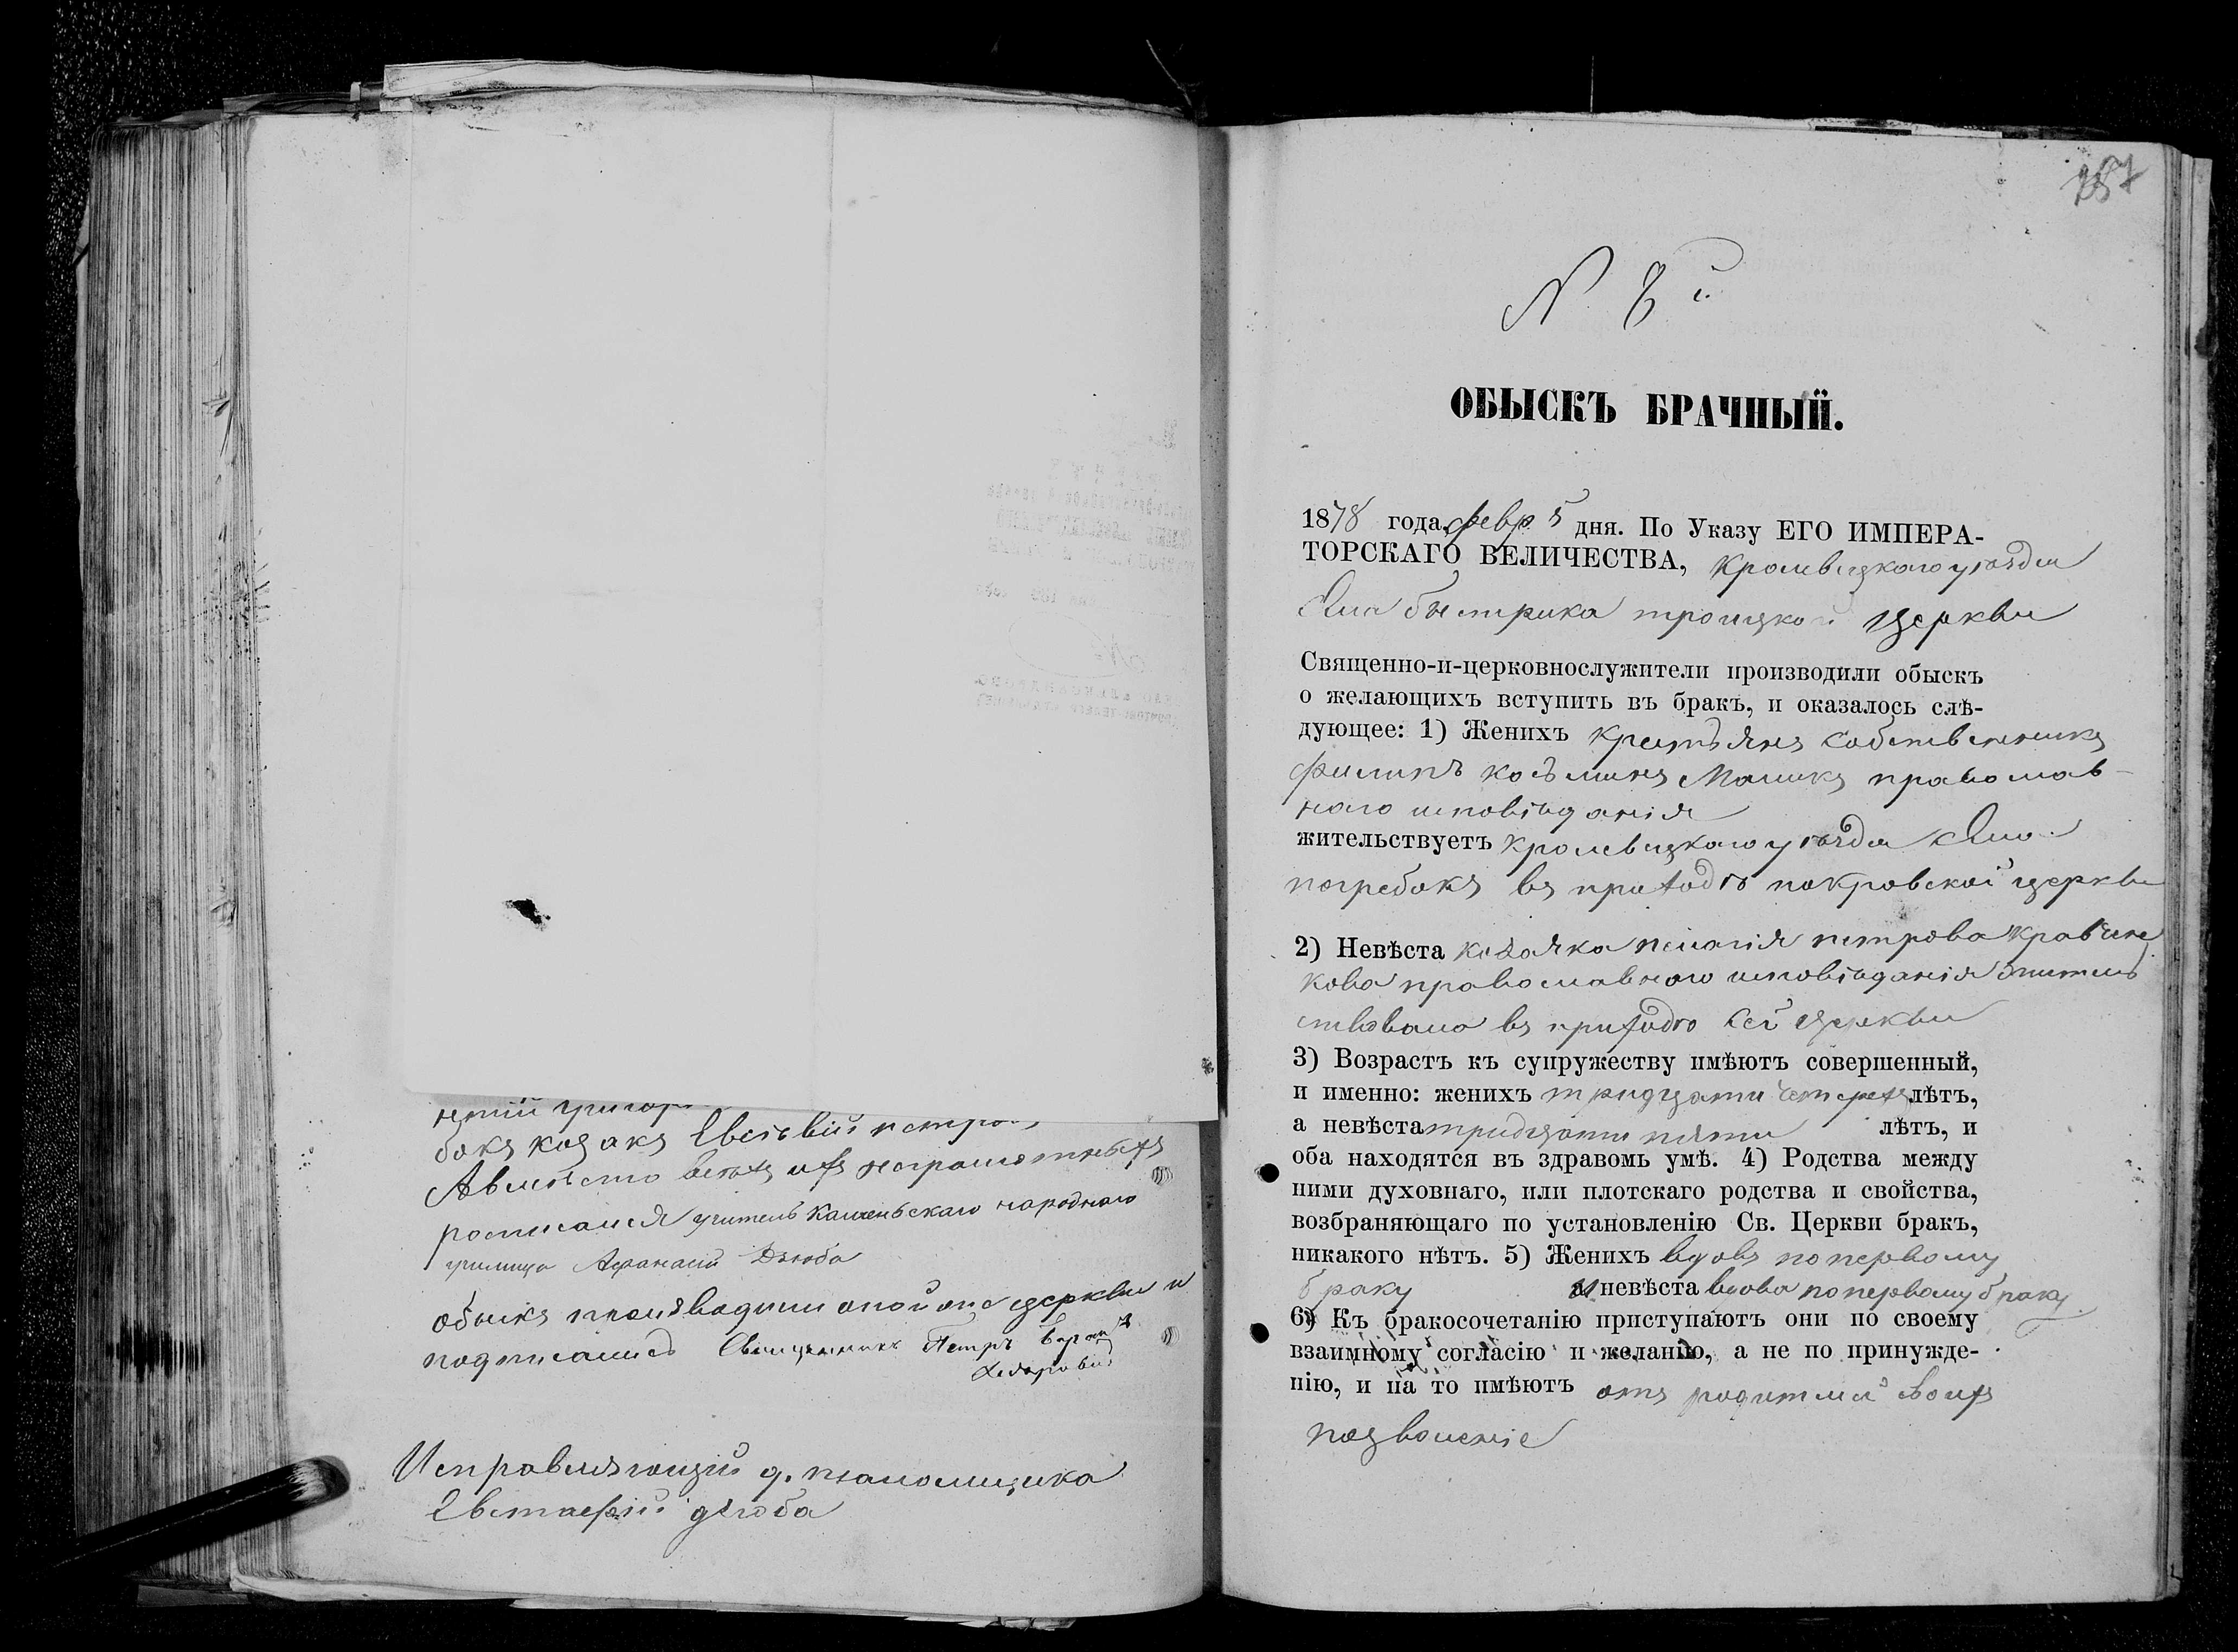 бокъ козакъ Евсѣвій петров
Авмѣсто всѣхъ ихъ неграмотныхъ
росписался учитель Каменьскаго народнаго
училища Афанасій Дзюба
обыскъ производили оной оне церкви и
подписались Священникъ Петръ
Исправляющій д. псаломщика
Евстафій дзюба
187
N 8й
ОБЫСКЪ БРАЧНЫЙ.
1878 года февр 5 дня. По Указу ЕГО ИМПЕРА-
ТОРСКАГО ВЕЛИЧЕСТВА, Кролевецкого уѣзда
Села быстрика троицкой Церкви
Священно-и-церковнослужители производили обыскъ
о желающихъ вступить въ бракъ, и оказалось слѣ-
дующее: 1) Женихъ Крестьянъ Собственникъ
филипъ козьминъ Маликъ православ-
ного исповѣданія
жительствуетъ кролевецкого уѣзда Села
погребокъ въ приходѣ покровской церкви
2) Невѣста козачка пелагія петрова кравчен
кова православного исповѣданія жител
ствовала въ приходѣ Сей Церкви
3) Возрастъ къ супружеству имѣютъ совершенный,
и именно: женихъ тридцати четырехъ лѣтъ,
а невѣста тридцати пяти лѣтъ, и
оба находятся въ здравомъ умѣ. 4) Родства между
ними духовнаго, или плотскаго родства и свойства,
возбраняющаго по установленію Св. Церкви бракъ,
никакого нѣтъ. 5) Женихъ вдовъ по первому
браку а невѣста вдова по первому браку
6) Къ бракосочетанію приступаютъ они по своему
взаимному согласію и желанію, а не по принужде-
нію, и на то имѣютъ отъ родителей своихъ
позволеніе